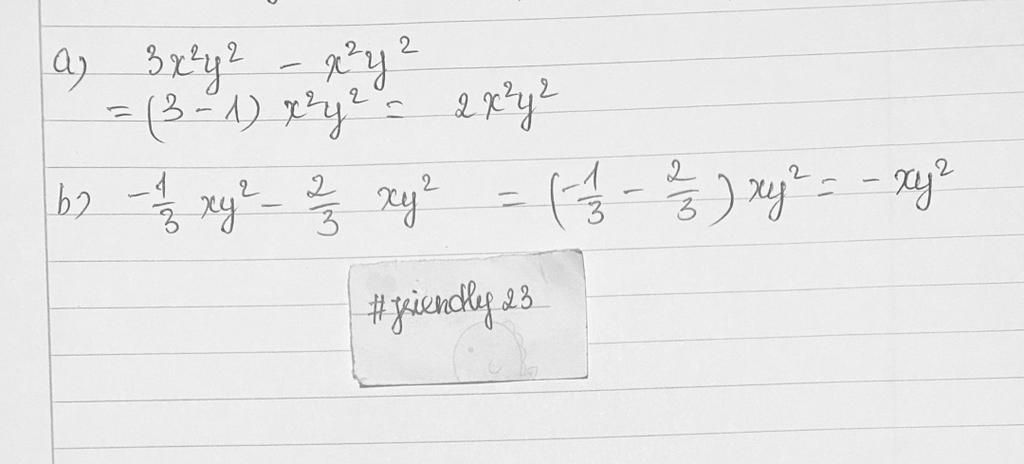 a) 3x²y² - x²y²
= (3 - 1) x²y² = 2x²y²
b) -1/3 xy² - 2/3 xy² = (-1/3 - 2/3) xy² = - xy²
#friendly 23